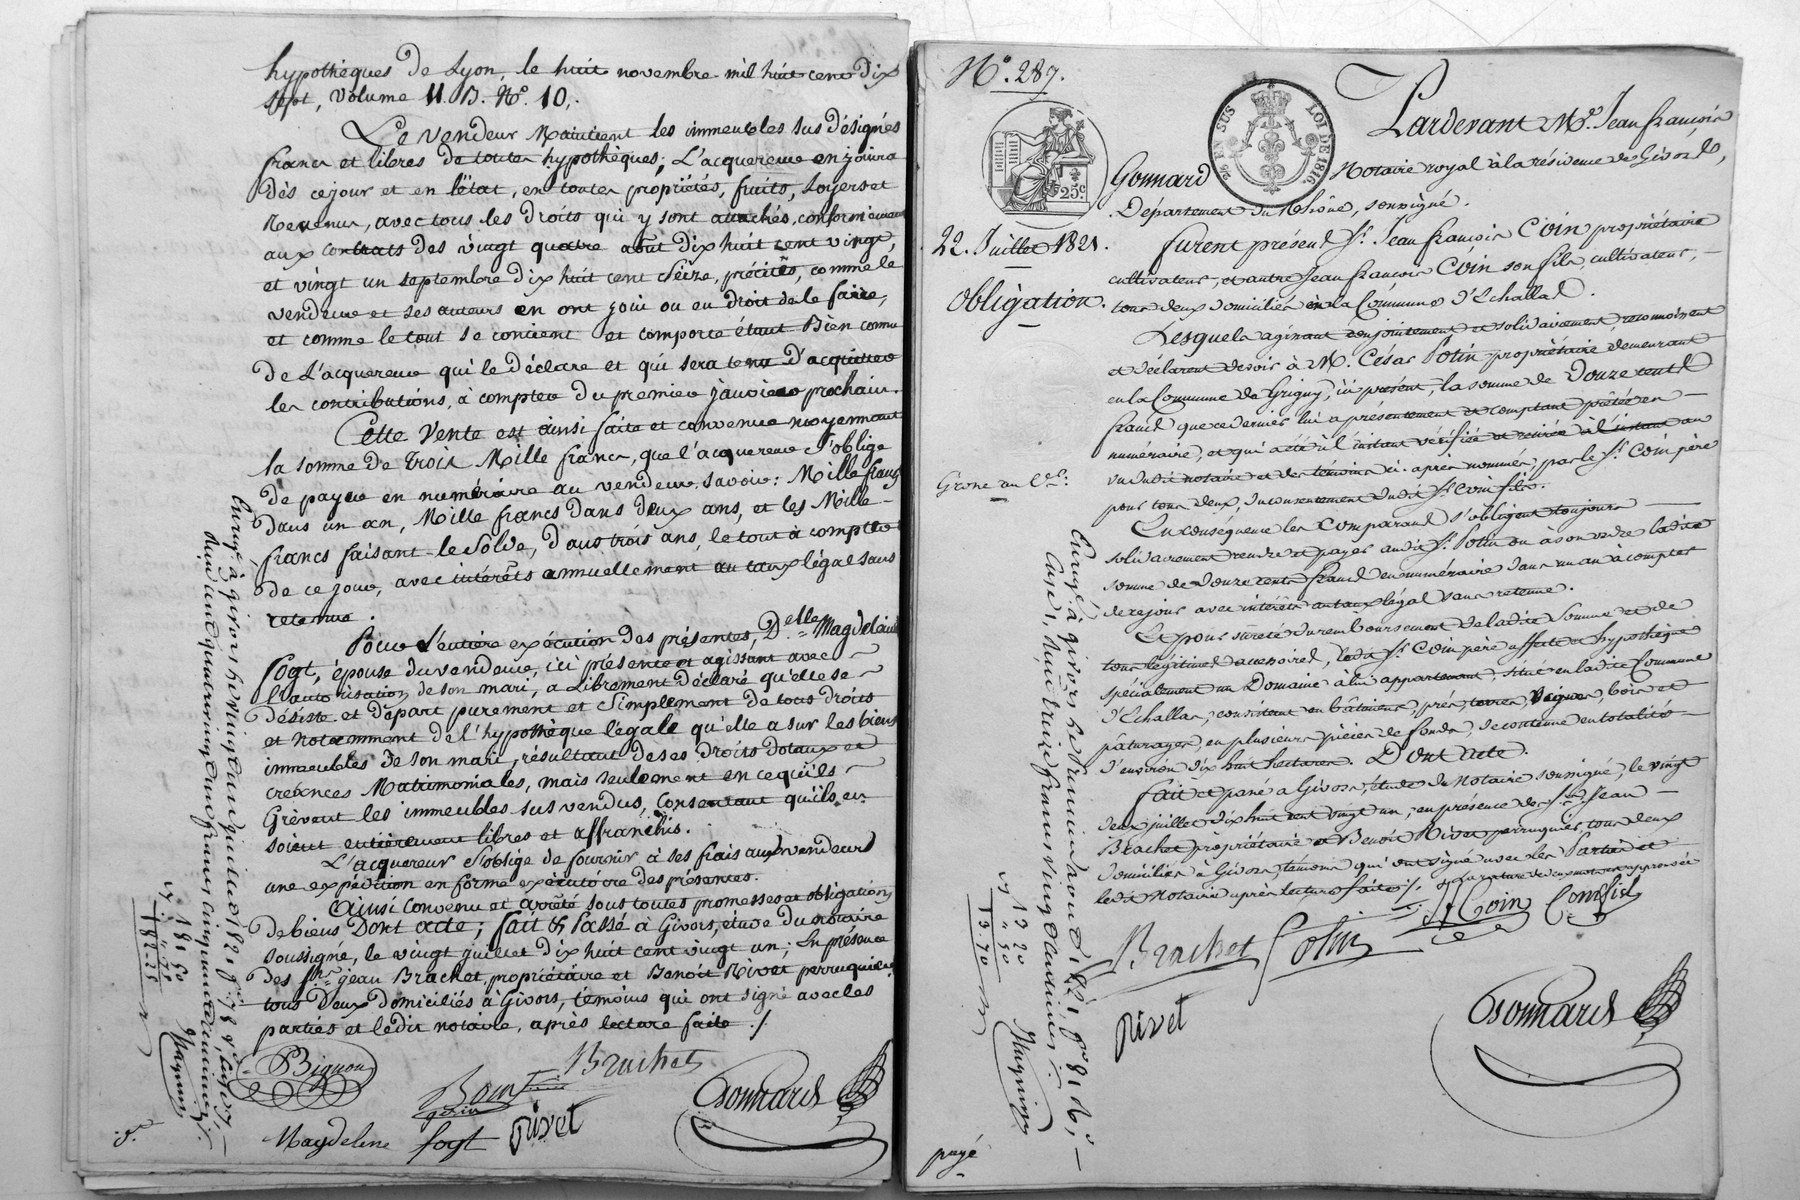 hypothèques de Lyon, le huit novembre mil huit cent dix
sept, volume 11. B. N.º 10.
Le vendeur Maintient les immeubles sus désignés
francs et libres de toutes hypothèques; L'acquereur en jouira
dès ce jour et en l'état, en toutes propriétés, fruits, loyers et
Revenus, avec tous les droits qui y sont attachés, conformément
aux contrats des vingt quatre août dix huit cent vingt,
et vingt un septembre dix huit cent seize, précités, comme le
vendeur et ses auteurs en ont joui ou eu droit de le faire,
et comme le tout se contient et comporte étant Bien connu
de L'acquereur qui le déclare et qui sera tenu d'acquitter
les contributions, à compter du premier janvier prochain.
Cette Vente est ainsi faite et convenue moyennant
la somme de Trois Mille francs, que l'acquereur s'oblige
de payer en numéraire au vendeur, savoir: Mille francs
dans un an, Mille francs dans deux ans, et les Mille
francs faisant le Solde, dans trois ans, le tout à compter
de ce jour, avec intérêts annuellement au taux légal sans
retenue.
Pour L'entière exécution des présentes, D.elle Magdelaine
Fogt, épouse du vendeur, ici présente et agissant avec
l'autorisation de son mari, a Librement déclaré qu'elle se
désiste et Départ purement et Simplement de tous droits
et notamment de l'hypothèque légale qu'elle a sur les biens
immeubles de son mari, résultant de ses droits dotaux et
créances Matrimoniales, mais seulement en cequ'ils
Grèvent les immeubles sus vendus, Consentant qu'ils en
soient entièrement libres et affranchis.
L'acquereur s'oblige de fournir à ses frais au vendeur
une expédition en forme exécutoire des présentes.
Ainsi convenu et arrêté sous toutes promesses et obligations
de biens Dont acte; fait & Passé à Givors, étude du notaire
soussigné, le vingt juillet dix huit cent vingt un; En présence
des S.rs jean Brachet, propriétaire et Benoit Rivet perruquier,
tous deux domiciliés à Givors, témoins qui ont signé avec les
parties et ledit notaire, après lecture faite ./.
Bignon
Brachet
Gonnard
Magdelene fogt
Rivet
181 50
182-25
N.º 287.
25c
26 EN SUS
LOI DE 1816
22. Juillet 1821.
Obligation.
Pardevant M.e Jean françois
Gonnard Notaire royal à la résidence de Givors,
Département du Rhône, soussigné.
furent présens S.r Jean françois Coin propriétaire
cultivateur, et autre Jean françois Coin son fils, cultivateur,
tous deux domiciliés en la Commune d'Echallas.
Lesquels agissant conjointement et solidairement, reconnoissent
et déclarent devoir à M. César Potin propriétaire demeurant
en la Commune de Grigny, ici présent, la somme de Douze cents
francs que ce dernier lui a présentement et comptant prêtée en
numéraire, et qui a été à l'instant vérifiée et retirée à l'instant au
vu dudit notaire et des témoins ci-après nommés, par le S.r Coin père
pour tous deux, du consentement dudit S.r Coin fils.
En conséquence les Comparans s'obligent toujours
solidairement rendre et payer audit S.r Potin ou à son ordre ladite
somme de Douze cents francs en numéraire dans un an à compter
de ce jour avec intérêts au taux légal sans retenue.
Et pour sûreté du remboursement de ladite Somme et de
tous légitimes accessoires, ledit S.r Coin père affecte et hypothèque
spécialement un Domaine à lui appartenant, situé en ladite Commune
d'Echallas, consistant en bâtimens, prés, terres, Vignes, bois et
pâturages, en plusieurs pièces de fonds, de contenue en totalité
d'environ dix huit hectares. Dont acte.
fait et passé à Givors, étude du Notaire soussigné, le vingt
deux juillet dix huit cent vingt un, en présence des S.rs Jean
Brachet propriétaire et Benoit Rivet perruquier, tous deux
domiciliés à Givors, témoins qui ont signé avec les Parties et
ledit Notaire après lecture faite ./.
Coin Coin fils
Brachet Potin
Rivet
Gonnard
13 20
" 50
13.70
payé